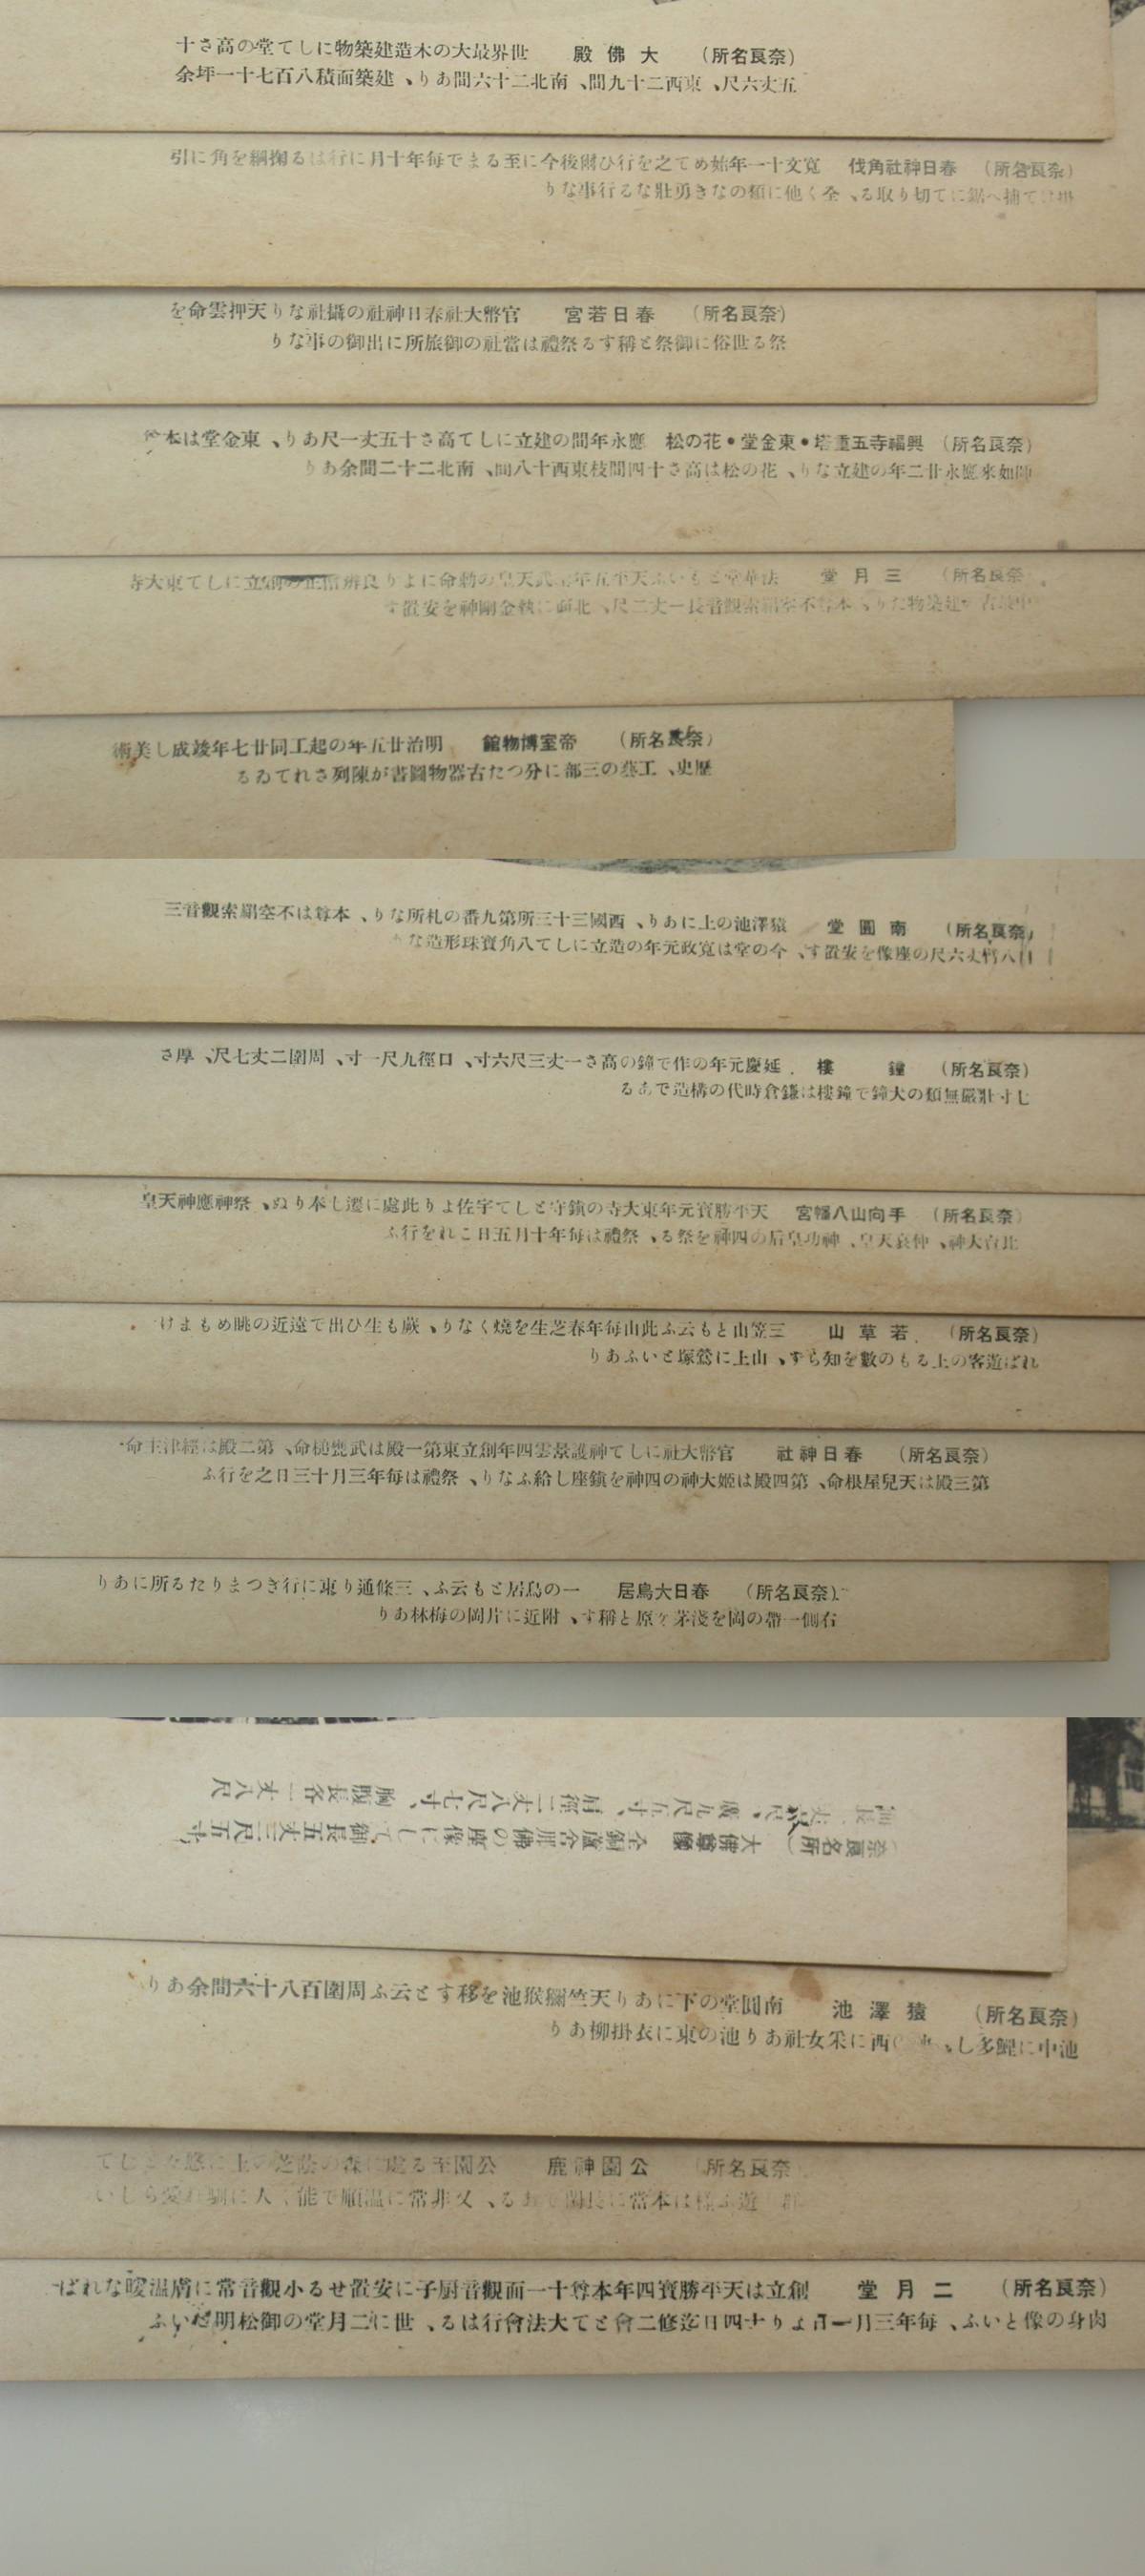 （奈良名所）　大佛殿　世界最大の木造建築物にして堂の高さ十
五丈六尺、東西二十九間、南北二十六間あり、建築面積八百七十一坪余
（奈良名所）　春日神社角伐　寛文十一年始めて之を行ひ爾後今に至るまで毎年十月に行はる掬綱を角に引
掛けて捕へ鋸にて切り取る、全く他に類のなき勇壯なる行事なり
（奈良名所）　春日若宮　官幣大社春日神社の攝社なり天押雲命を
祭る世俗に御祭と稱する祭禮は當社の御旅所に出御の事なり
（奈良名所）　興福寺五重塔•東金堂•花の松　應永年間の建立にして高さ十五丈一尺あり、東金堂は本尊
師如來應永廿二年の建立なり、花の松は高さ十四間枝東西十八間、南北二十二間余あり
（奈良名所）　三月堂　法華堂ともいふ天平五年聖武天皇の勅命により良辨僧正の創立にして東大寺
中最古の建築物たり、本尊不空羂索觀音長一丈二尺、北面に執金剛神を安置す
（奈良名所）　帝室博物館　明治廿五年の起工同廿七年竣成し美術
歴史、工藝の三部に分つた古器物圖書が陳列されてゐる
（奈良名所）　南圓堂　猿澤池の上にあり、西國三十三所第九番の札所なり、本尊は不空羂索觀音三
目八臂丈六尺の座像を安置す、今の堂は寛政元年の造立にして八角寳珠形造な
（奈良名所）　鐘樓　延慶元年の作で鐘の高さ一丈三尺六寸、口徑九尺一寸、周圍二丈七尺、厚さ
七寸壯嚴無類の大鐘で鐘樓は鎌倉時代の構造である
（奈良名所）　手向山八幡宮　天平勝寳元年東大寺の鎮守として宇佐より此處に遷し奉りぬ、祭神應神天皇
比賣大神、仲哀天皇、神功皇后の四神を祭る、祭禮は毎年十月五日これを行ふ
（奈良名所）　若草山　三笠山とも云ふ此山毎年春芝生を燒くなり、蕨も生ひ出で遠近の眺めもまけ
れば遊客の上るもの數を知らず、山上に鶯塚といふあり
（奈良名所）　春日神社　官幣大社にして神護景雲四年創立東第一殿は武甕槌命、第二殿は經津主命
第三殿は天兒屋根命、第四殿は姬大神の四神を鎮座し給ふなり、祭禮は毎年三月十三日之を行ふ
（奈良名所）　春日大鳥居　一の鳥居とも云ふ、三條通り東に行きつまりたる所にあり
右側一帶の岡を淺茅ヶ原と稱す、附近に片岡の梅林あり
（奈良名所）　大佛尊像　金銅盧舎那佛の座像にして御長五丈三尺五寸、
面長一丈六尺、廣九尺五寸、肩徑二丈八尺七寸、胸腹長各一丈八尺
（奈良名所）　猿澤池　南圓堂の下にあり天竺獼猴池を移すと云ふ周圍百八十六間余あり
池中に鯉多し、西に采女社あり池の東に衣掛柳あり
（奈良名所）　公園神鹿　公園至る處に森の蔭の芝の上に悠々として
群れ遊ぶ様は本當に長閑である、又非常に温順で能く人に馴れ愛らしい
（奈良名所）　二月堂　創立は天平勝寳四年本尊十一面觀音厨子に安置せる小觀音常に膚温曖なれば
肉身の像といふ、毎年三月一日より十四日迄修二會とて大法會行はる、世に二月堂の御松明といふ